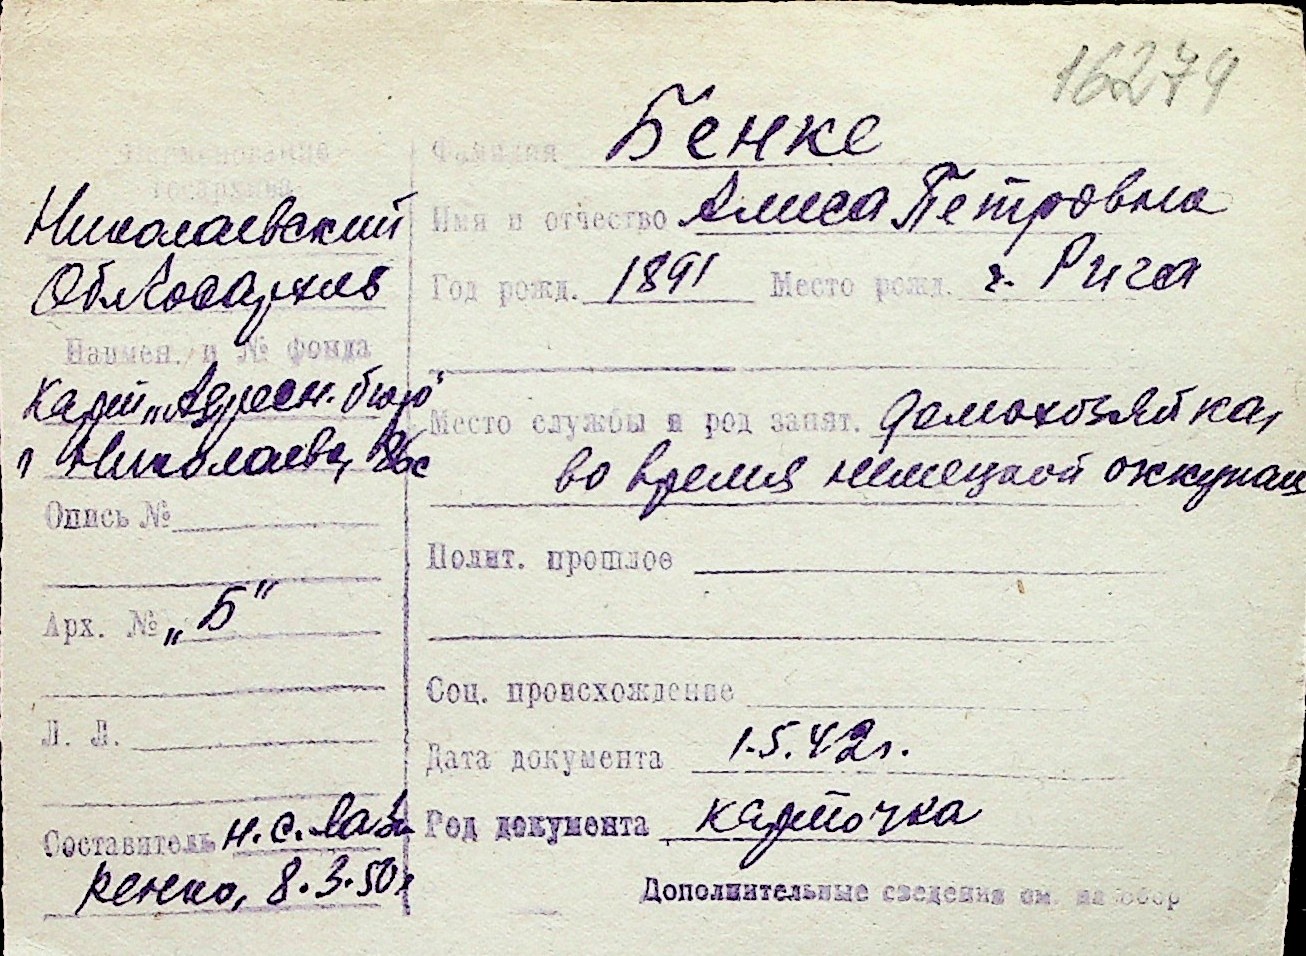 16279
Наименование
госархива
Николаевский
Облгосархив
Наимен. и № фонда
Карт. „Адресн. бюро"
г. Николаева,
Опись №
Арх. № „Б"
Л. Л.
Составитель Н. С. Лаза
ренко, 8.3.50г
Фамилия Бенке
Имя и отчество Алиса Петровна
Год рожд. 1891 Место рожд. г. Рига
Место службы и род занят. домохозяйка,
во время немецкой оккупац
Полит. прошлое
Соц. происхождение
Дата документа 1.5.42г.
Род документа карточка
Дополнительные сведения см. на обор